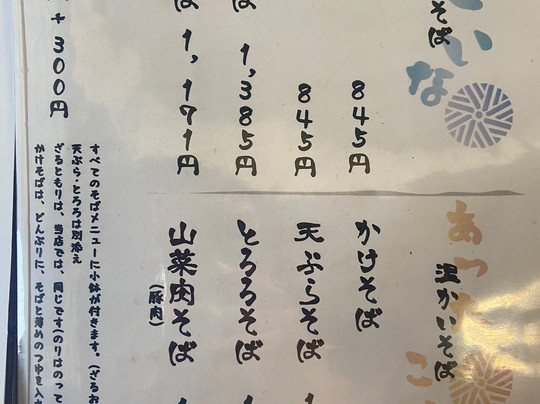 いな
そば
845円
845円
1,385円
ば 1,171円
+300円
あった
温かいそば
かけそば
天ぷらそば
とろろそば
山菜肉そば
(豚肉)
すべてのそばメニューに小鉢が付きます。(ざるお
天ぷら・とろろは別添え
ざるともりは、当店では、同じです(のりはのって
かけそばは、どんぶりに、そばと薄めのつゆを入